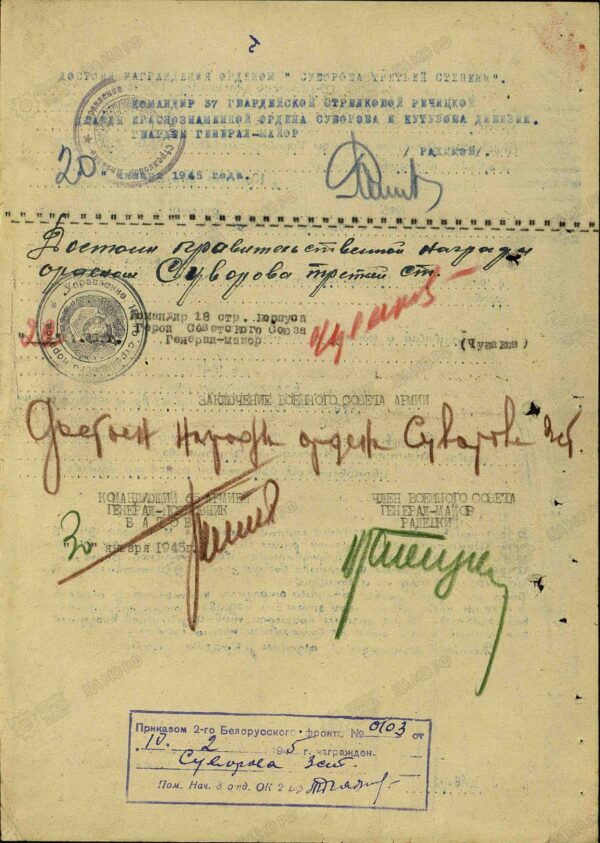 ДОСТОИН НАГРАЖДЕНИЯ ОРДЕНОМ " СУВОРОВА ТРЕТЬЕЙ СТЕПЕНИ".
КОМАНДИР 37 ГВАРДЕЙСКОЙ СТРЕЛКОВОЙ РЕЧИЦКОЙ
КРАСНОЗНАМЕННОЙ ОРДЕНА СУВОРОВА И КУТУЗОВА ДИВИЗИИ.
ГВАРДИИ ГЕНЕРАЛ-МАЙОР
/ РАХИМОВ/.
20 " января 1945 года.
Достоин правительственной награды
орденом Суворова третий ст.
Командир 18 стр. корпуса
Герой Советского Союза
Генерал-майор
(Чуваков)
Управление
ЗАКЛЮЧЕНИЕ ВОЕННОГО СОВЕТА АРМИИ
Достоен награды ордена Суворова 3 ст
КОМАНДУЮЩИЙ 65 АРМИЕЙ
ГЕНЕРАЛ-ПОЛКОВНИК
БАТОВ
"30" января 1945г.
ЧЛЕН ВОЕННОГО СОВЕТА
ГЕНЕРАЛ-МАЙОР
РАДЕЦКИЙ
Приказом 2-го Белорусского фронта № 0103 от
10. 2 1945 г. награжден
Суворова 3 ст.
Пом. Нач. 3 отд. ОК 2